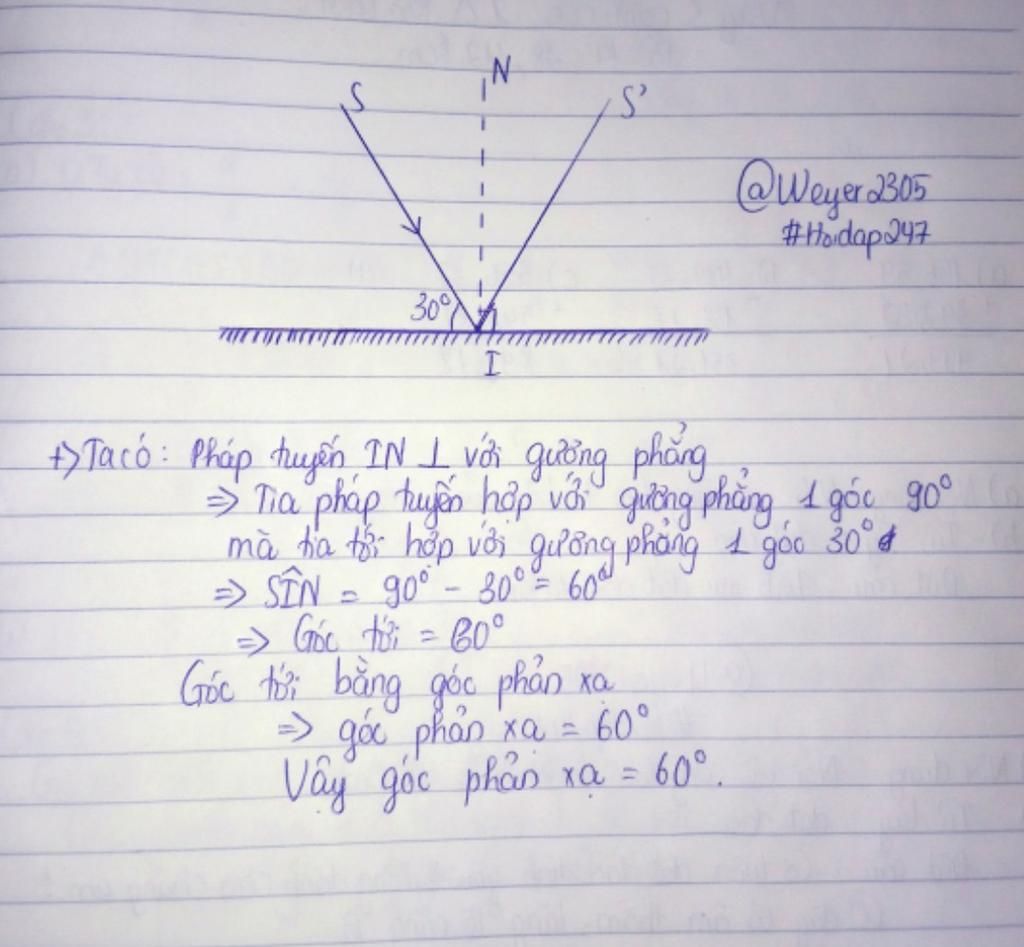 N
S
S'
@Weyer2305
#Hoidap247
30°
I
+> Ta có: Pháp tuyến IN ⊥ với gương phẳng
=> Tia pháp tuyến hợp với gương phẳng 1 góc 90°
mà tia tới hợp với gương phẳng 1 góc 30°
=> SÎN = 90° - 30° = 60°
=> Góc tới = 60°
Góc tới bằng góc phản xạ
=> góc phản xạ = 60°
Vậy góc phản xạ = 60°.